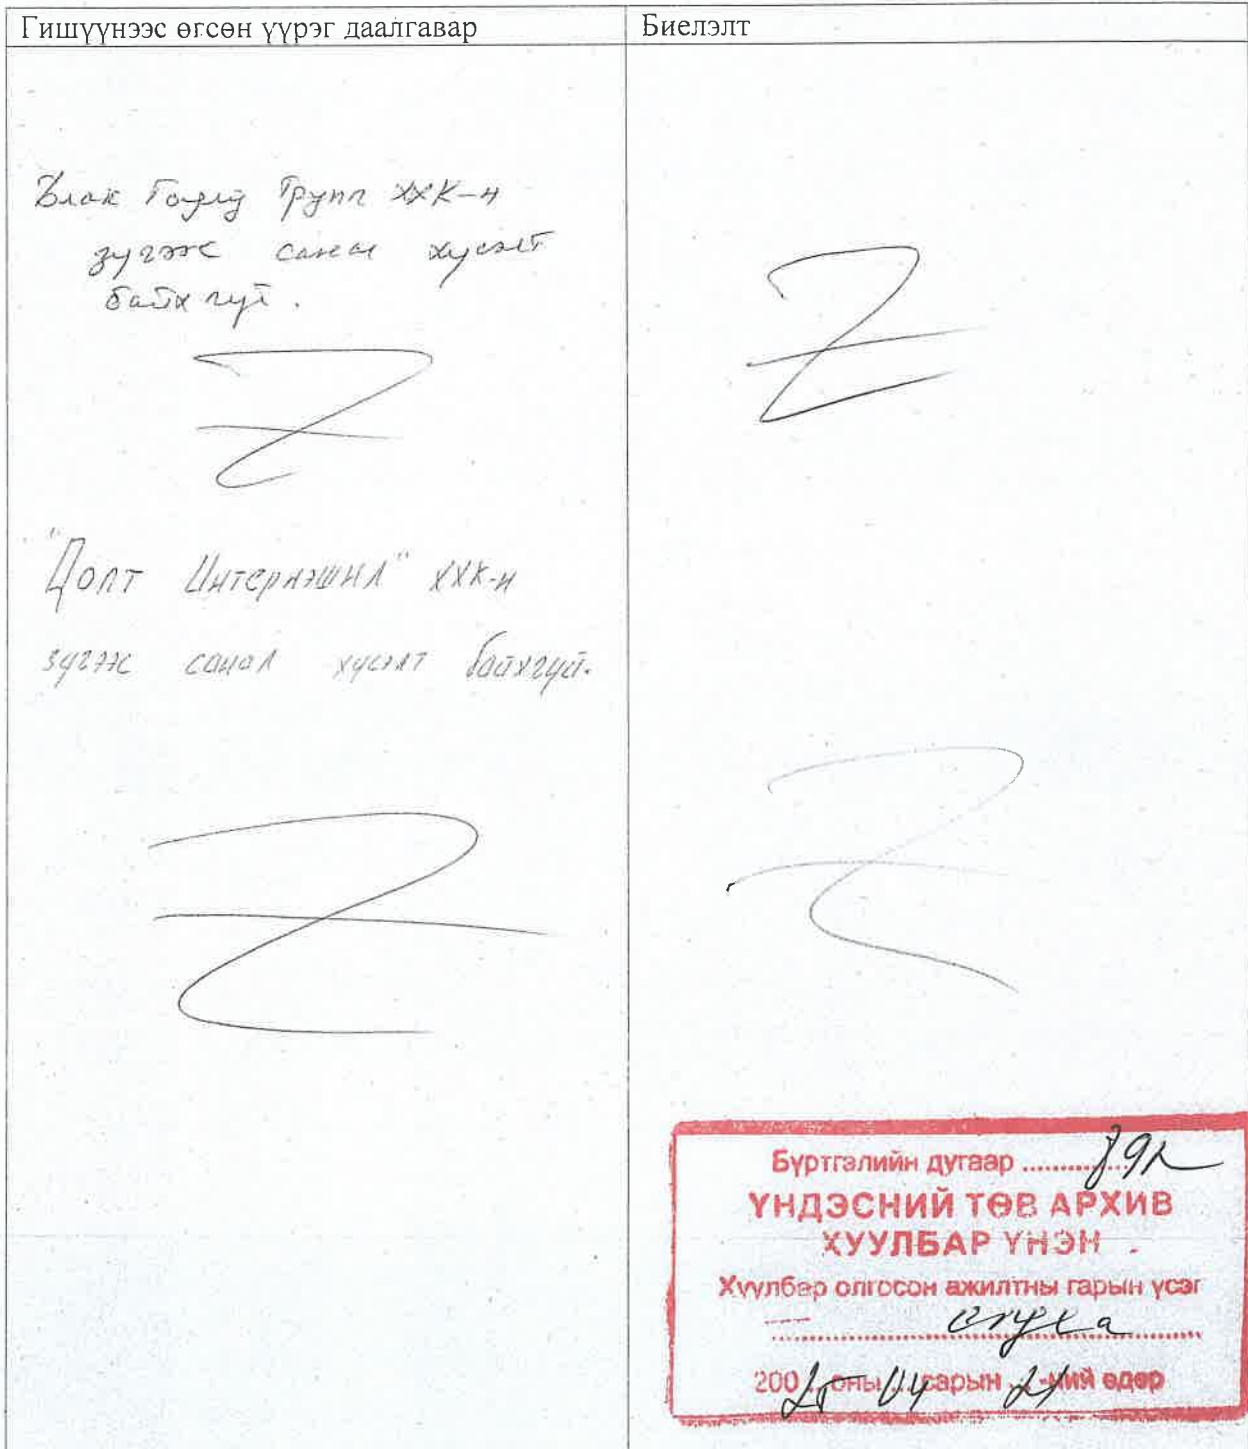 Гишүүнээс өгсөн үүрэг даалгавар
Биелэлт
Блак Гоулд Групп ХХК-н
зүгээс санал хүсэлт
байхгүй.
"Цолт Интернэшнл" ХХК-н
зүгээс санал хүсэлт байхгүй.
Бүртгэлийн дугаар ..........
ҮНДЭСНИЙ ТӨВ АРХИВ
ХУУЛБАР ҮНЭН
Хуулбар олгосон ажилтны гарын үсэг
200 25 оны 04 сарын 21-ний өдөр